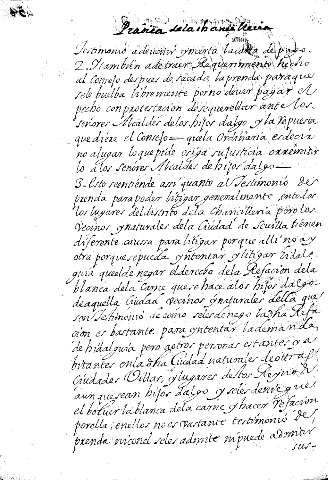 Pratica de la chancilleria
testimonio adevenir ynserta la carta de pago.
2. Y tambien adetraer Requerimiento hecho
al Consejo despues de sacada la prenda paraque
sele buelba libremente por no dever pagar el
pecho con protestacion de sequerellar ante los
señores Alcaldes delos hijos dalgo y la Repuesta
que diere el Consejo — que la Ordinaria es decir
no a lugar lo que pide o siga su justicia o a remitir
lo a los Señores Alcaldes de hijos dalgo —
3. Esto se entiende asi quanto al Testimonio de
prenda para poder litigar generalmente en todos
los lugares del distrito dela Chancilleria pero los
Vecinos y naturales dela Ciudad de Sevilla tienen
diferente causa para litigar porque alli no ay
otra porque se pueda yntentar y litigar hidal
guia que el denegar el derecho dela Refacion dela
blanca dela Carne que se hace a los hijos dalgo
de aquella Ciudad Vecinos y naturales della que
son Testimonio de como seles deniega la dha Refa
cion es bastante para yntentar la demanda
de hidalguia pero a otras personas estantes y a
bitantes en la dha Ciudad naturales de otras
Ciudades Villas, y lugares destos Reynos
aunque sean hijos dalgo y seles deniegue
el bolver la blanca dela carne y hacer refacion
por ella, en ellos no es bastante testimonio de
prenda ni con el seles admite ni puede admitir
sus-